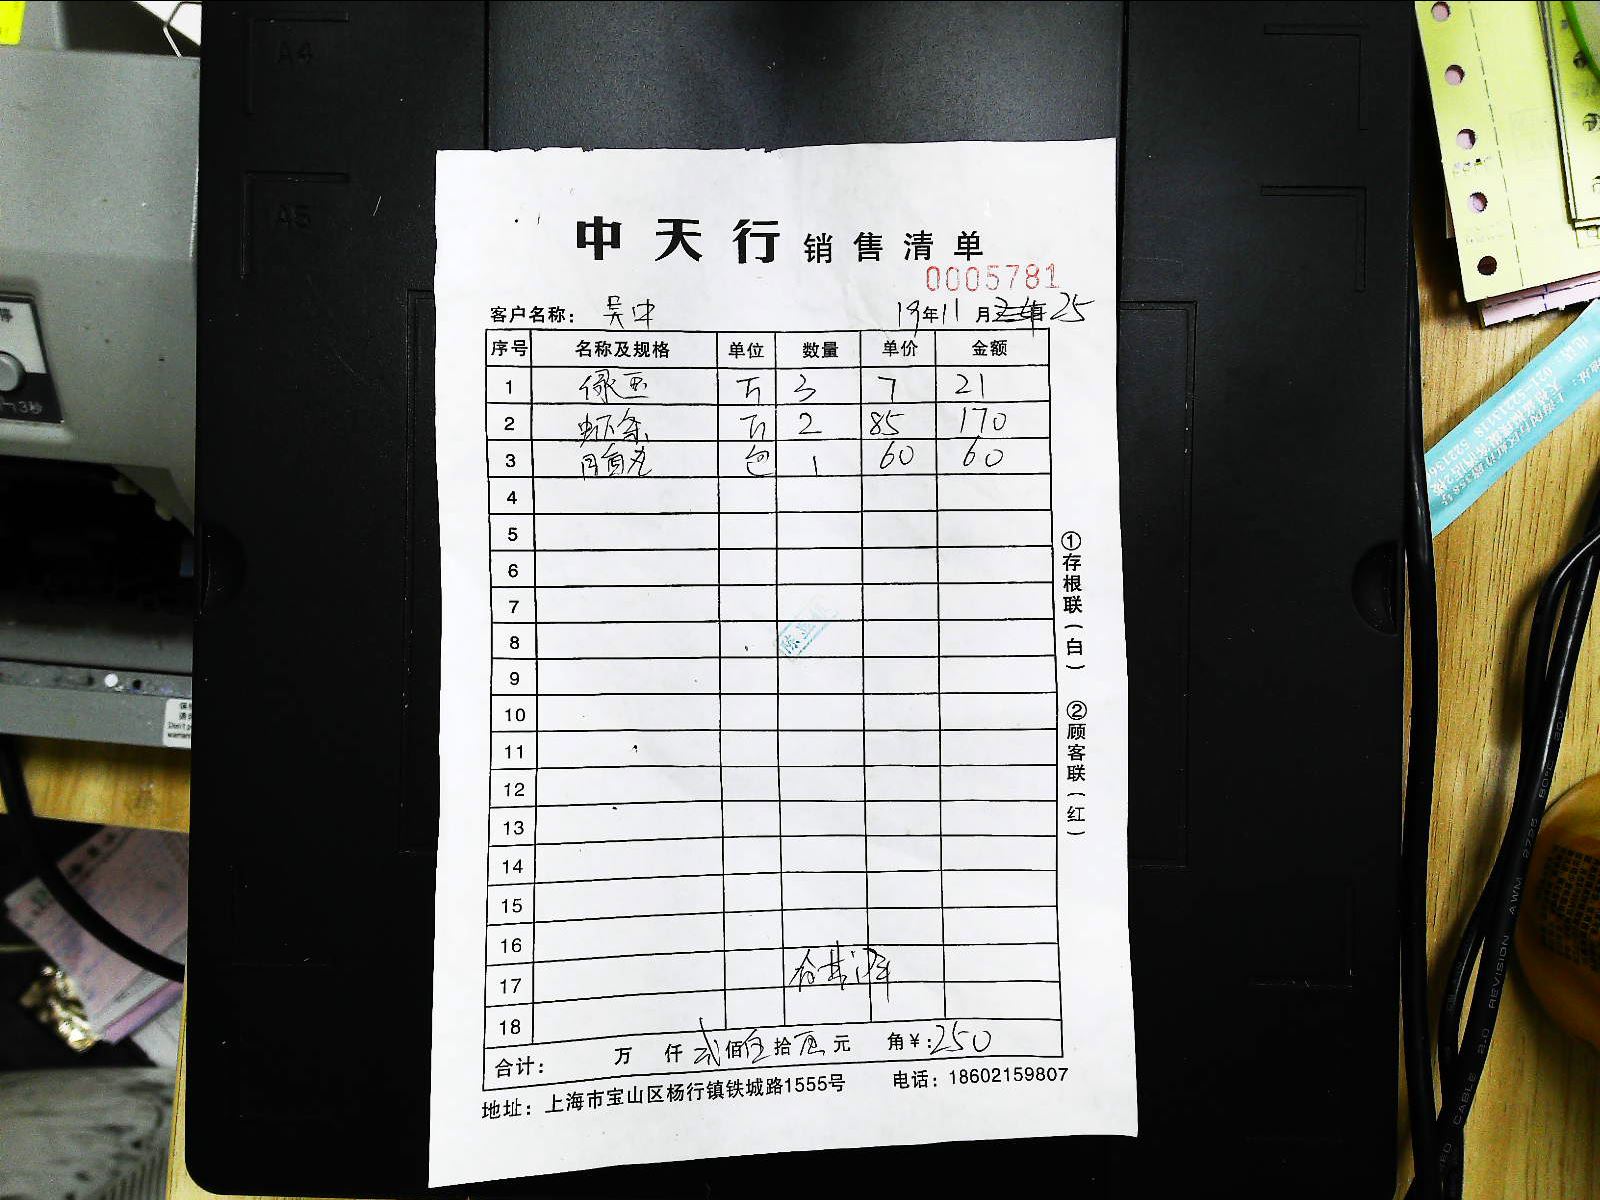 中天行销售清单
0005781
客户名称： 吴中 19年11月 25
序号 名称及规格 单位 数量 单价 金额
1 绿豆 斤 3 7 21
2 虾条 斤 2 85 170
3 包 1 60 60
4
5
6
7
8
9
10
11
12
13
14
15
16
17
18
合计： 万 仟 贰 佰 伍 拾 元 角 ¥：250
地址：上海市宝山区杨行镇铁城路1555号 电话：18602159807
①存根联（白）
②顾客联（红）
A4
A5